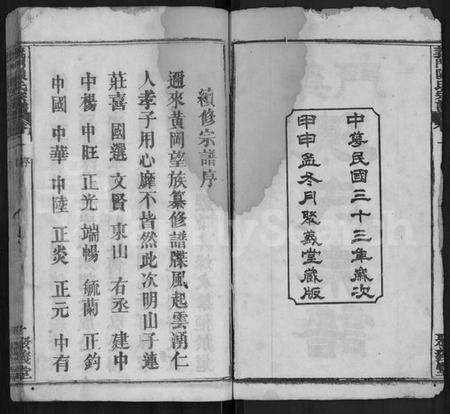 中華民國三十三年歲次
甲申孟冬月聚義堂藏版
續修宗譜序
邇來黃岡望族纂修譜牒風起雲湧仁
人孝子用心靡不皆然此次明山子連
莊喜 國選 文賢 東山 右丞 建中
中楊 中旺 正光 端暢 毓蘭 正鈞
中國 中華 中陸 正炎 正元 中有
聚義堂